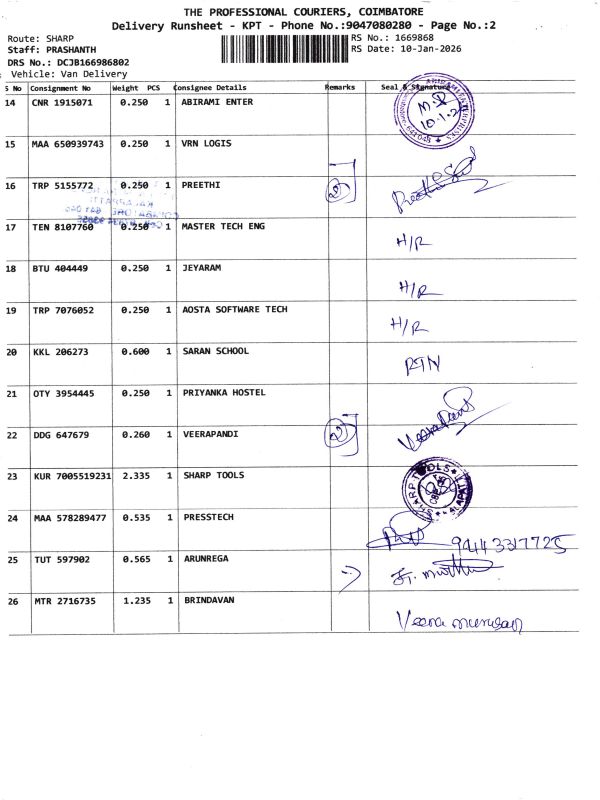 THE PROFESSIONAL COURIERS, COIMBATORE
Delivery Runsheet - KPT - Phone No.:9047080280 - Page No.:2
Route: SHARP
RS No.: 1669868
Staff: PRASHANTH
RS Date: 10-Jan-2026
DRS No.: DCJB166986802
Vehicle: Van Delivery
S No Consignment No Weight PCS Consignee Details Remarks Seal & Signature
14 CNR 1915071 0.250 1 ABIRAMI ENTER
10.1.2
15 MAA 650939743 0.250 1 VRN LOGIS
16 TRP 5155772 0.250 1 PREETHI
17 TEN 8107760 0.250 1 MASTER TECH ENG H/R
18 BTU 404449 0.250 1 JEYARAM H/R
19 TRP 7076052 0.250 1 AOSTA SOFTWARE TECH H/R
20 KKL 206273 0.600 1 SARAN SCHOOL RTN
21 OTY 3954445 0.250 1 PRIYANKA HOSTEL
22 DDG 647679 0.260 1 VEERAPANDI
23 KUR 7005519231 2.335 1 SHARP TOOLS
SHARP TOOLS
24 MAA 578289477 0.535 1 PRESSTECH
25 TUT 597902 0.565 1 ARUNREGA
26 MTR 2716735 1.235 1 BRINDAVAN
Veera murugan